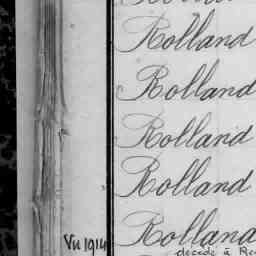 Rolland
Rolland
Rolland
Rolland
Vu 1914 Rolland
decede à